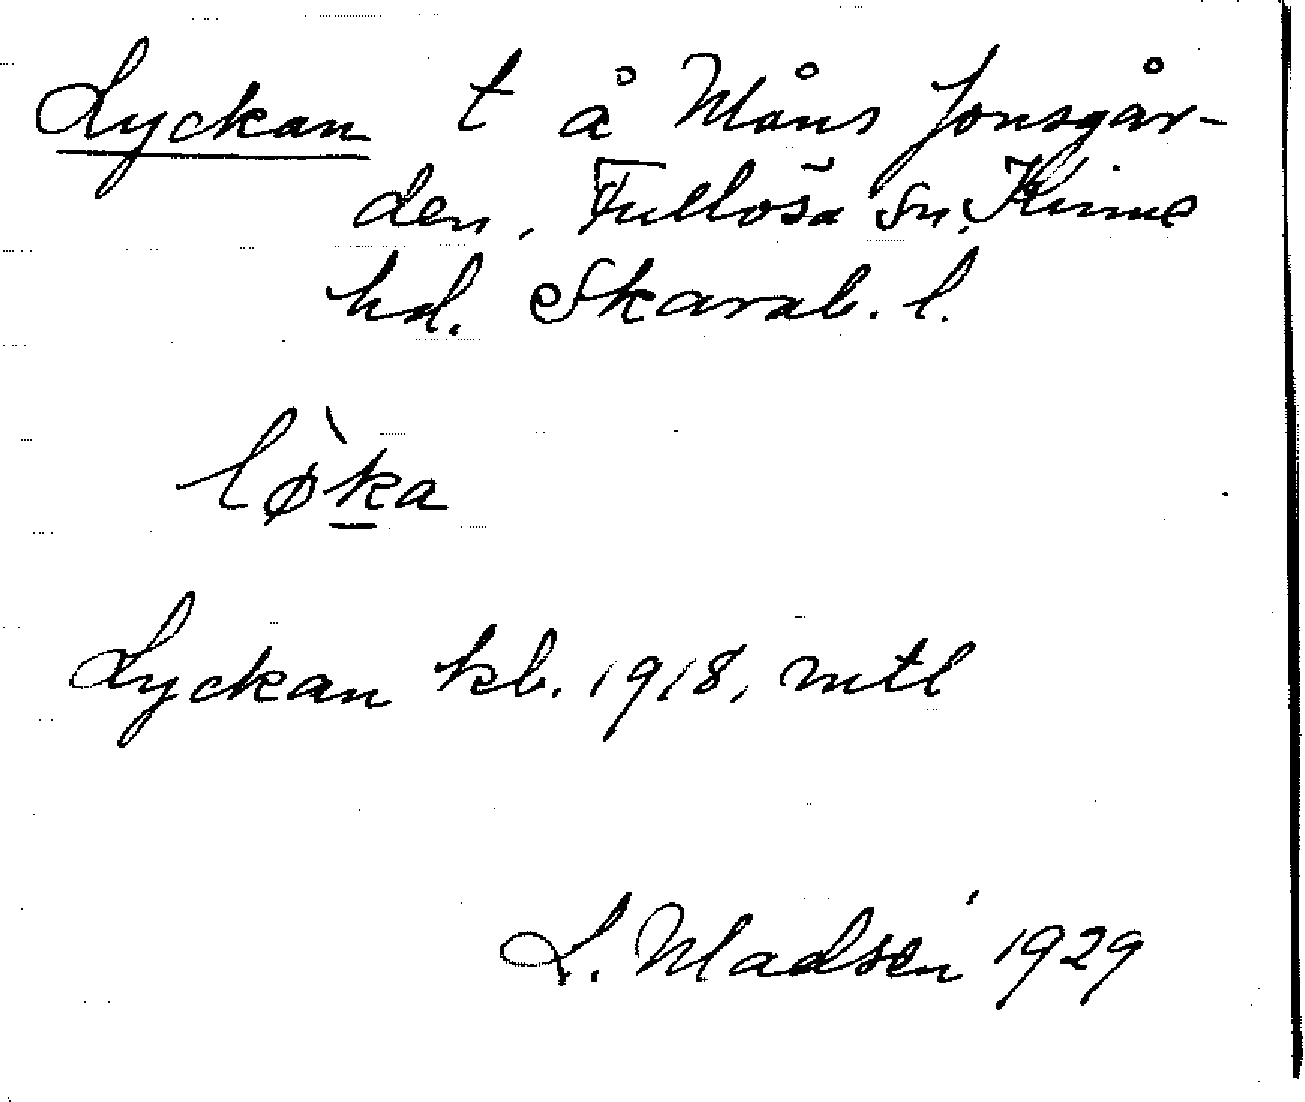 Lyckan t å Måns Jonsgår-
den, Fullösa sn, Kinne
hd. Skarab. l.
lø̀ka
Lyckan kb. 1918, mtl
L. Madsén 1929